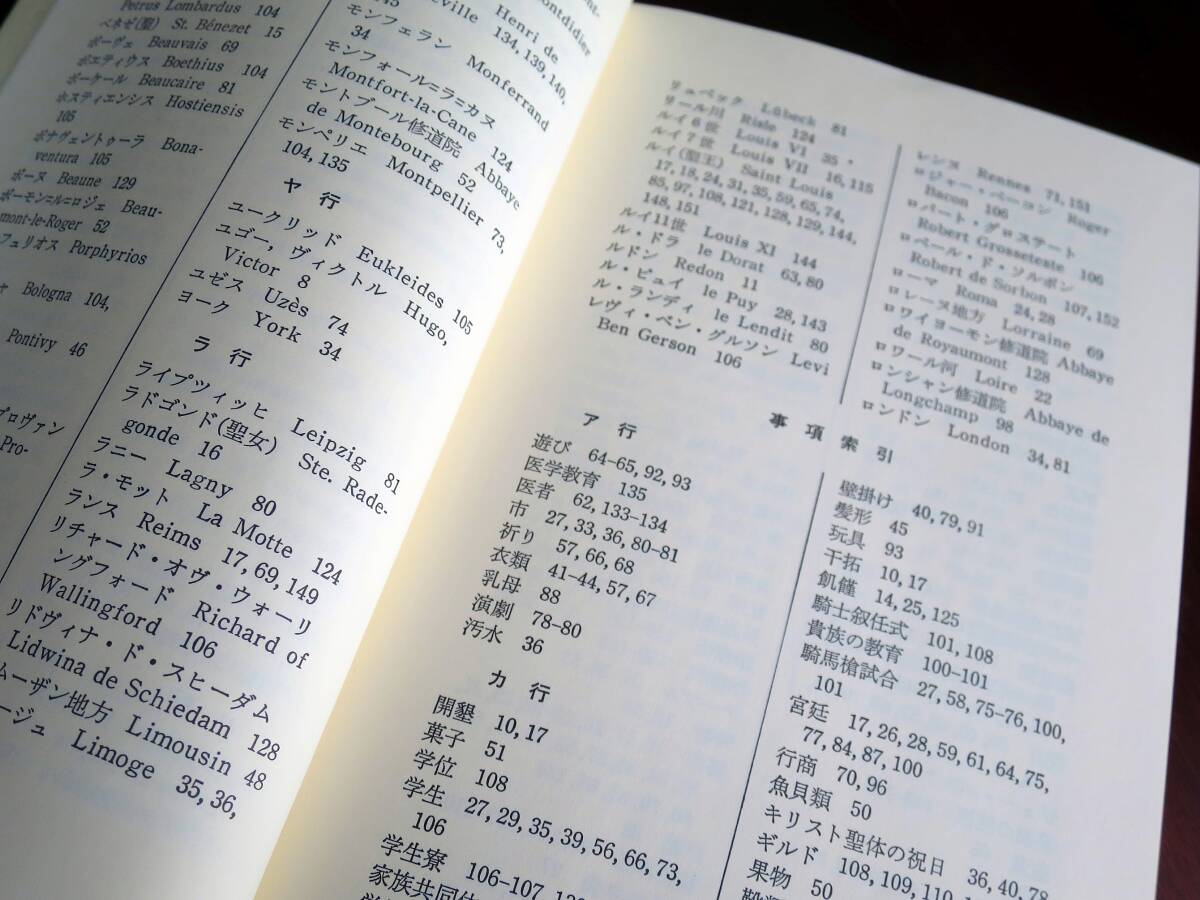 Petrus Lombardus 104
ベネゼ(聖) St. Bénezet 15
ボーヴェ Beauvais 69
ボエティウス Boethius 104
ボーケール Beaucaire 81
ホスティエンシス Hostiensis
105
ボナヴェントゥーラ Bona-
ventura 105
ボーヌ Beaune 129
ボーモン=ル=ロジェ Beau-
mont-le-Roger 52
フュリオス Porphyrios
Bologna 104,
Pontivy 46
プロヴァン
Pro-
ontdidier
Henri de
eville 134, 139, 140,
145
モンフェラン Monferrand
34
モンフォール=ラ=カヌ
Montfort-la-Cane 124
モントブール修道院 Abbaye
de Montebourg 52
モンペリエ Montpellier 73,
104, 135
ヤ 行
ユークリッド Eukleides 105
ユゴー, ヴィクトル Hugo,
Victor 8
ユゼス Uzès 74
ヨーク York 34
ラ 行
ライプツィッヒ Leipzig 81
ラドゴンド(聖女) Ste. Rade-
gonde 16
ラニー Lagny 80
ラ・モット La Motte 124
ランス Reims 17, 69, 149
リチャード・オヴ・ウォーリ
ングフォード Richard of
Wallingford 106
リドヴィナ・ド・スヒーダム
Lidwina de Schiedam 128
ムーザン地方 Limousin 48
ージュ Limoge 35, 36,
リュベック Lübeck 81
リール川 Risle 124
ルイ6世 Louis VI 35
ルイ7世 Louis VII 16, 115
ルイ(聖王) Saint Louis
17, 18, 24, 31, 35, 59, 65, 74,
85, 97, 108, 121, 128, 129, 144,
148, 151
ルイ11世 Louis XI 144
ル・ドラ le Dorat 63, 80
ルドン Redon 11
ル・ピュイ le Puy 28, 143
ル・ランディ le Lendit 80
レヴィ・ベン・グルソン Levi
Ben Gerson 106
レンヌ Rennes 71, 151
ロジャー・ベーコン Roger
Bacon 106
ロバート・グロステート
Robert Grosseteste 106
ロベール・ド・ソルボン
Robert de Sorbon 107, 152
ローマ Roma 24, 28
ロレーヌ地方 Lorraine 69
ロワイヨーモン修道院 Abbaye
de Royaumont 128
ロワール河 Loire 22
ロンシャン修道院 Abbaye de
Longchamp 98
ロンドン London 34, 81
事 項 索 引
ア 行
遊び 64-65, 92, 93
医学教育 135
医者 62, 133-134
市 27, 33, 36, 80-81
祈り 57, 66, 68
衣類 41-44, 57, 67
乳母 88
演劇 78-80
汚水 36
カ 行
開墾 10, 17
菓子 51
学位 108
学生 27, 29, 35, 39, 56, 66, 73,
106
学生寮 106-107,
家族共同体
壁掛け 40, 79, 91
髪形 45
玩具 93
干拓 10, 17
飢饉 14, 25, 125
騎士叙任式 101, 108
貴族の教育 100-101
騎馬槍試合 27, 58, 75-76, 100,
101
宮廷 17, 26, 28, 59, 61, 64, 75,
77, 84, 87, 100
行商 70, 96
魚貝類 50
キリスト聖体の祝日 36, 40, 78
ギルド 108, 109, 110,
果物 50